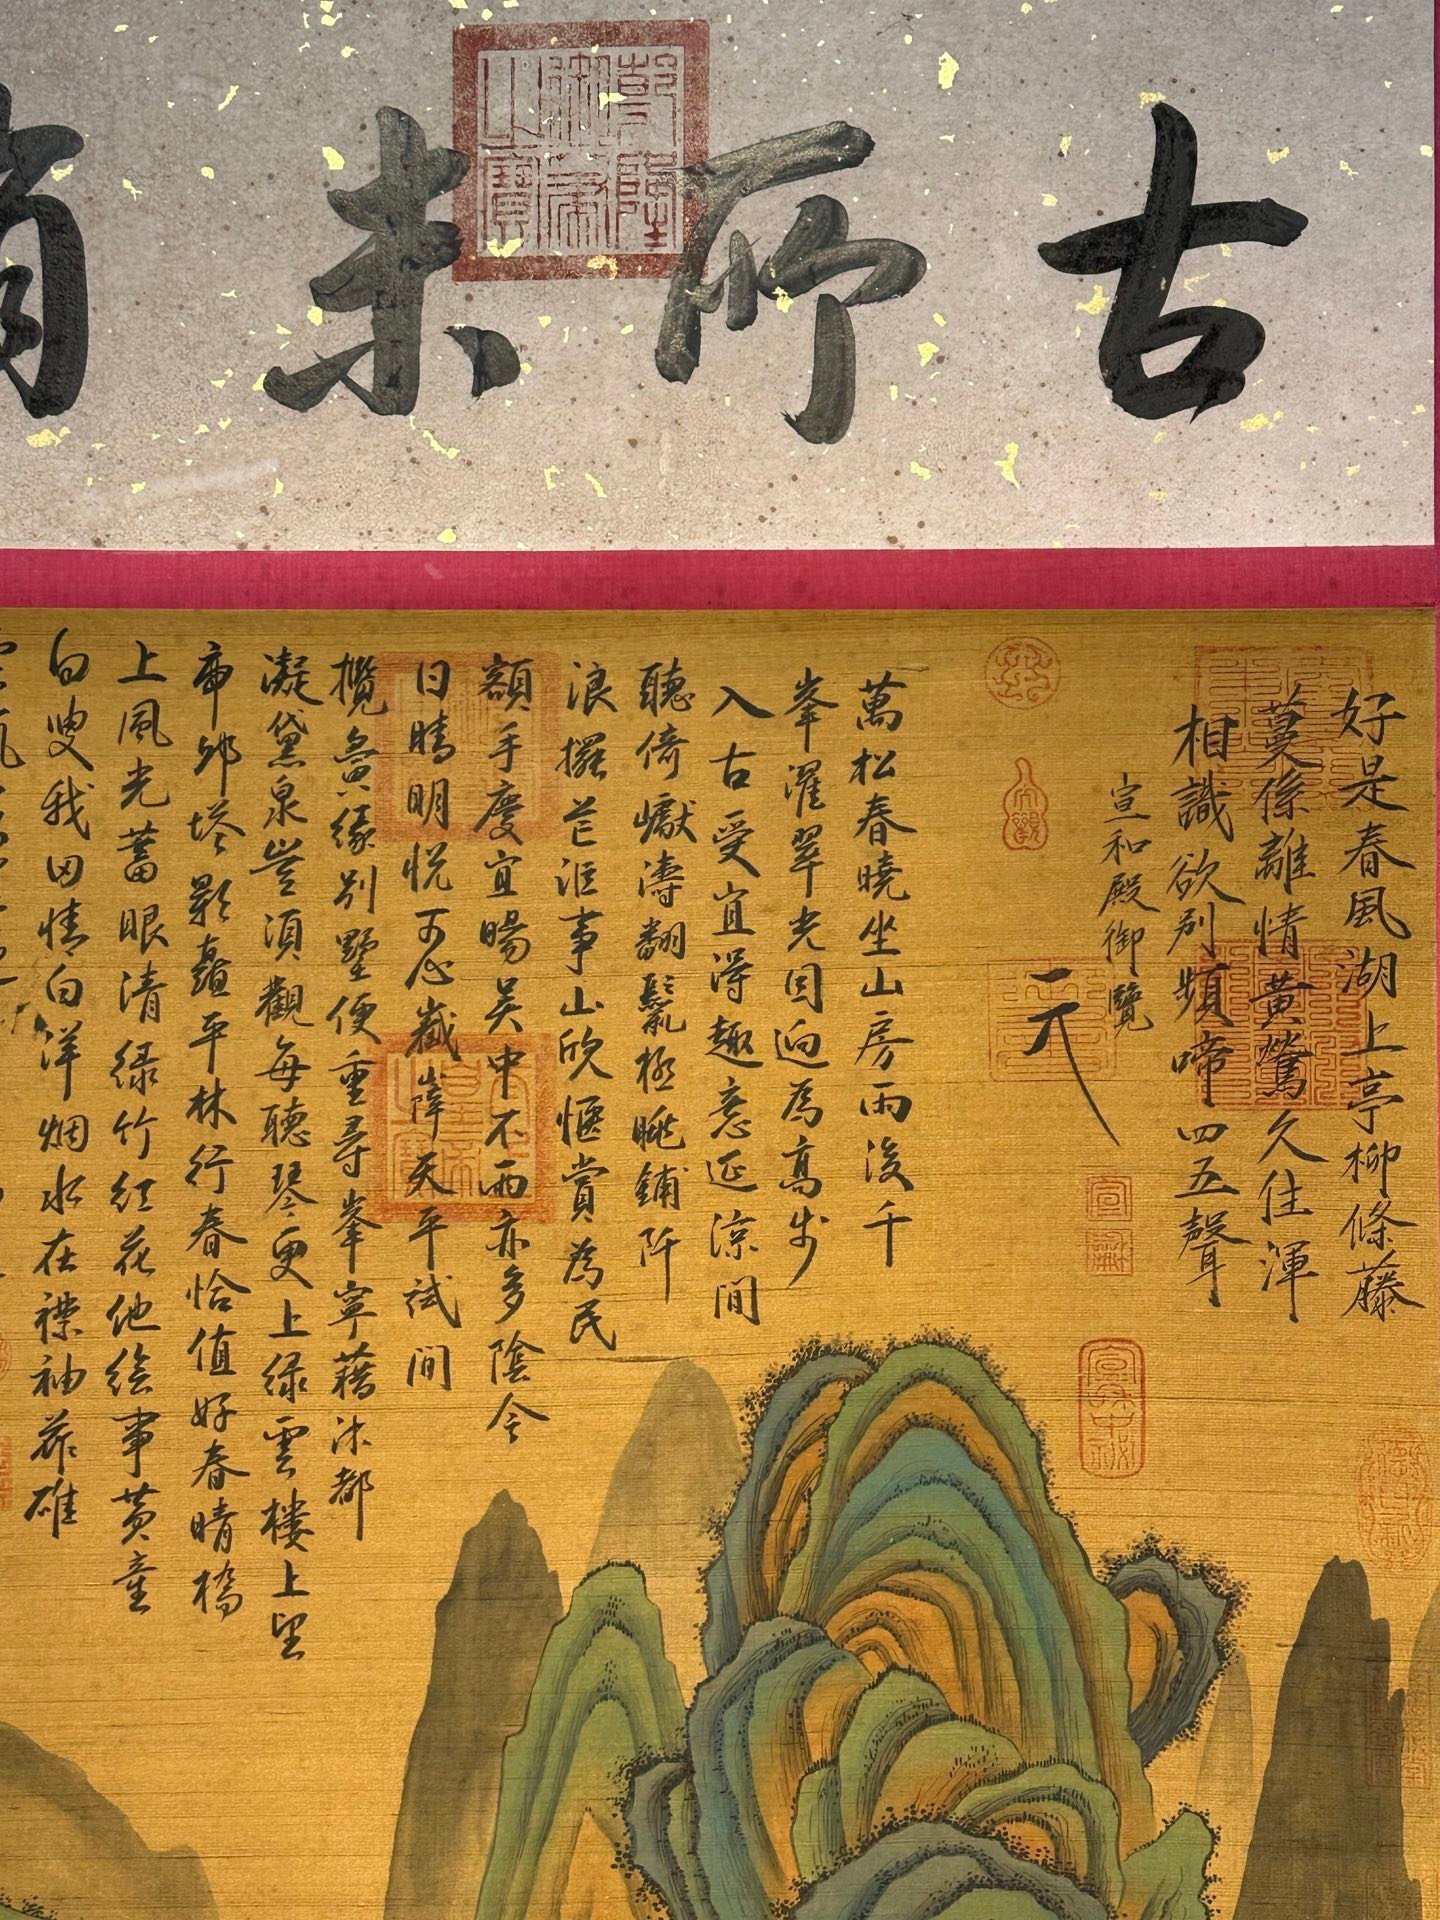 古所未有
乾隆御筆之寶
好是春風湖上亭柳條藤
蔓係離情黃鶯久住渾
相識欲別頻啼四五聲
宣和殿御覽
萬松春曉坐山房雨後千
峯濯翠光因迎為高步
入古受宜得趣意延涼間
聽倚巘濤翻鬣極眺鋪阡
浪擺芒涯事山欣愜賞為民
額手慶宜暘吳中不雨亦多陰今
日晴明悅可心巀嶂天平試間
攬夤緣別墅便重尋峯寧藉沐都
凝黛泉豈須觀每聽琴更上綠雲樓上望
帘邨塔影矗平林行春恰值好春晴橋
上風光蓄眼清綠竹紅花他繪事黃童
白叟我田情白洋烟水在襟袖